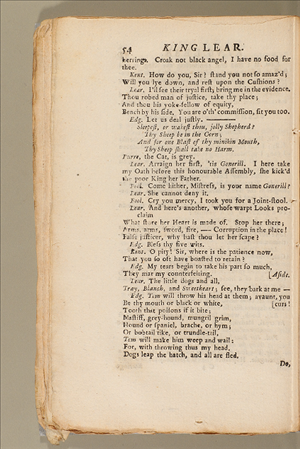 54 KING LEAR.
herrings. Croak not black angel, I have no food for
thee.
Kent. How do you, Sir? stand you not so amaz'd;
Will you lye down, and rest upon the Cushions?
Lear. I'll see their tryal first; bring me in the evidence.
Thou robed man of justice, take thy place;
And thou his yoke-fellow of equity,
Bench by his side, You are o' th' commission, sit you too.
Edg. Let us deal justly.
Sleepest, or wakest thou, jolly Shepherd?
Thy Sheep be in the Corn;
And for one Blast of thy minikin Mouth,
Thy Sheep shall take no Harm.
Purre, the Cat, is grey.
Lear. Arraign her first, 'tis Gonerill. I here take
my Oath before this honourable Assembly, she kick'd
the poor King her Father.
Fool. Come hither, Mistress, is your name Gonerill?
Lear. She cannot deny it.
Fool. Cry you mercy, I took you for a Joint-stool.
Lear. And here's another, whose warpt Looks pro-
claim
What store her Heart is made of. Stop her there;
Arms, arms, sword, fire, — Corruption in the place!
False justicer, why hast thou let her scape?
Edg. Bless thy five wits.
Kent. O pity! Sir, where is the patience now,
That you so oft have boasted to retain?
Edg. My tears begin to take his part so much,
They mar my counterfeiting. [Aside.
Lear. The little dogs and all,
Tray, Blanch, and Sweetheart; see, they bark at me —
Edg. Tom will throw his head at them; avaunt, you
Be thy mouth or black or white, [curs!
Tooth that poisons if it bite;
Mastiff, grey-hound, mungril grim,
Hound or spaniel, brache, or hym;
Or bobtail tike, or trundle-tail,
Tom will make him weep and wail:
For, with throwing thus my head,
Dogs leap the hatch, and all are fled.
Do,